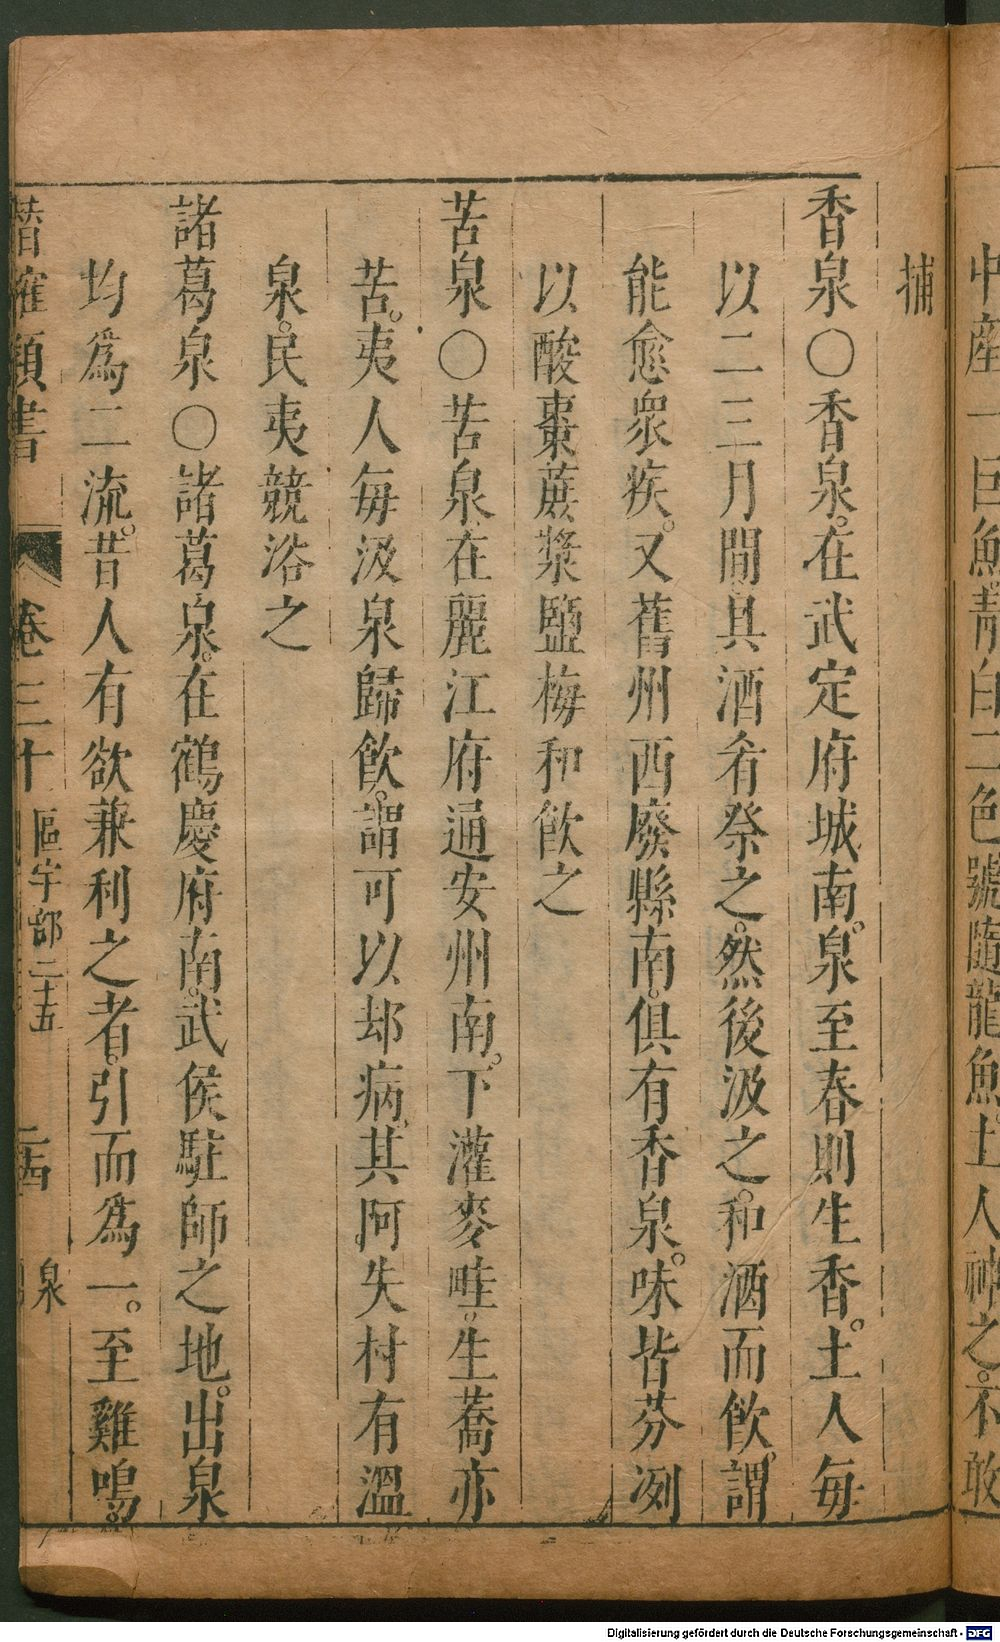 中產一巨魚靑白二色號隨龍魚土人祌之不敢
捕
香泉〇香泉在武定府城南泉至春則生香土人每
以二三月間具酒肴祭之然後汲之和酒而飮謂
能愈衆疾又舊州西廢縣南俱有香泉味皆芬冽
以酸棗蔗漿鹽梅和飮之
苦泉〇苦泉在麗江府通安州南下灌麥畦生蕎亦
苦夷人每汲泉歸飮謂可以却病其阿失村有溫
泉民夷競浴之
諸葛泉〇諸葛泉在鶴慶府南武侯駐師之地出泉
均爲二流昔人有欲兼利之者引而爲一至雞鳴
潛確類書 卷三十 區宇部二十五 二十四 泉
Digitalisierung gefördert durch die Deutsche Forschungsgemeinschaft - DFG